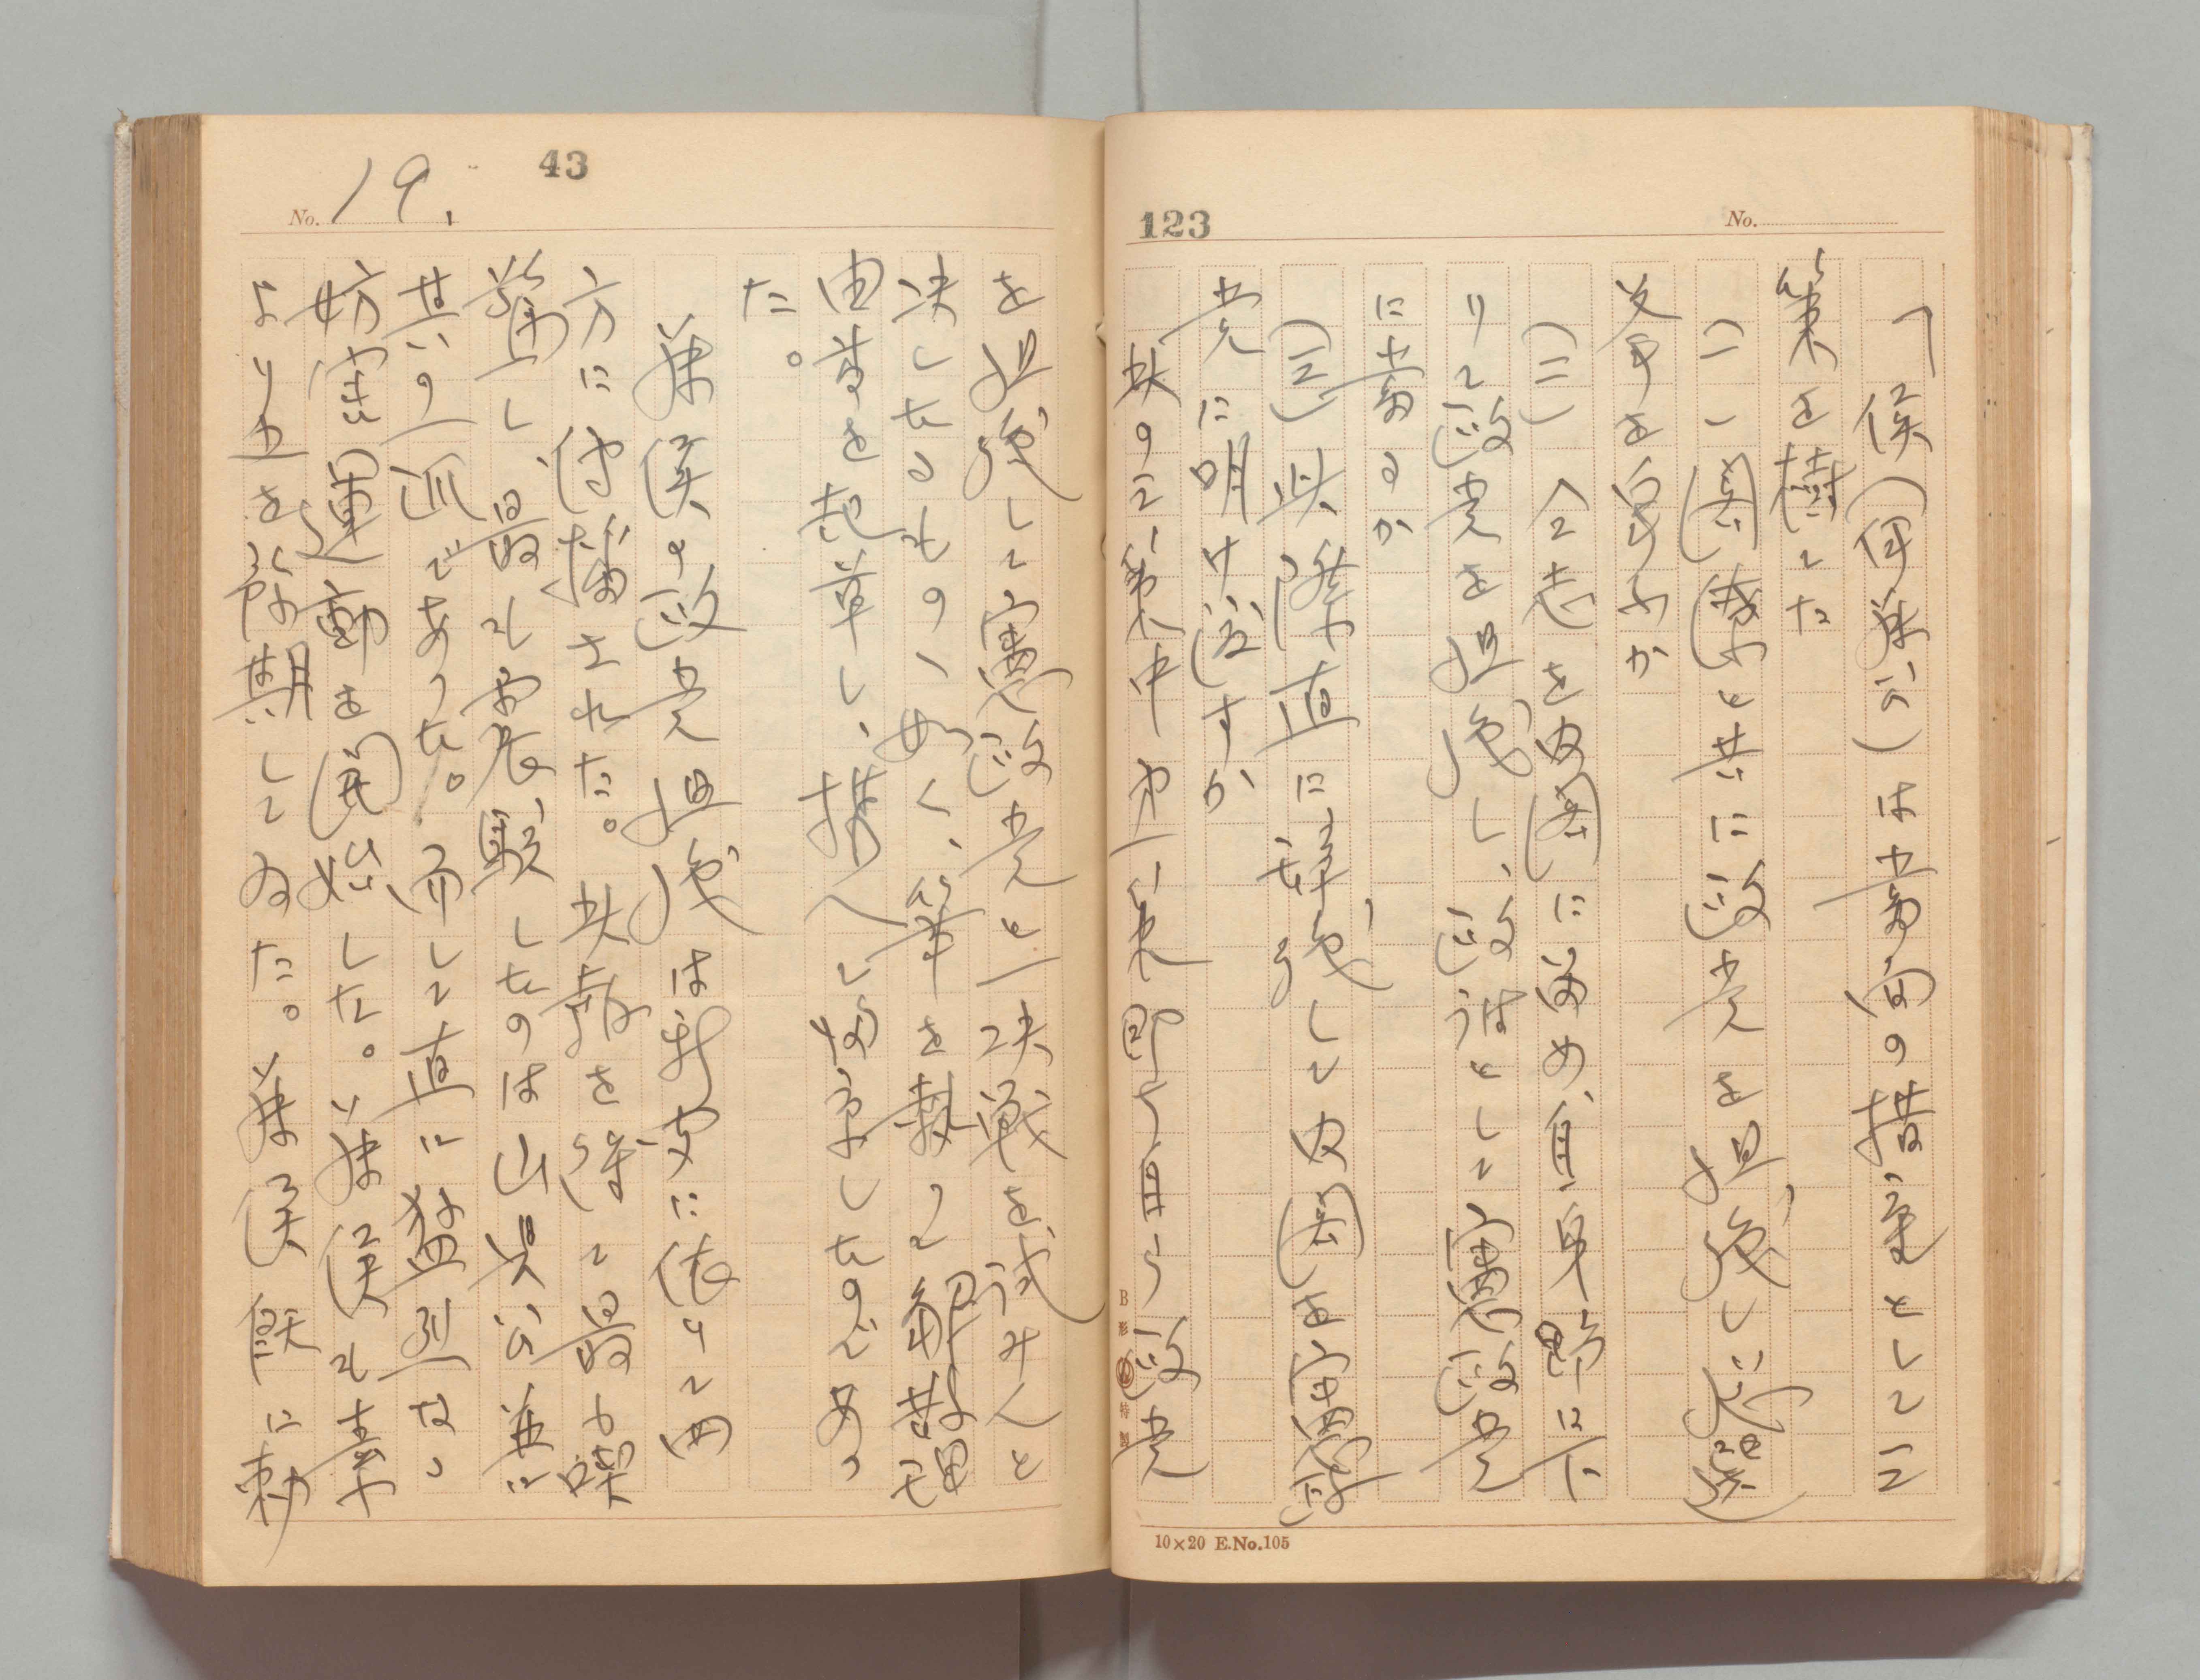 123
No.
「侯(伊藤公)は当面の措置として三
策を樹てた
(一)閣僚と共に政党を組織し武器
争を
(二)同志を内閣に留め、自身野に下
りて政党を組織し、政府として憲政党
に当るか
(三)此際直に辞職して内閣を憲政
党に明け渡すか
此の三策中第一策即ち自ら政党
B形 特製
10×20 E.No.105
43
No. 19.
を組織して憲政党と一決戦を試みんと
決したるものゝ如く、筆を執って解散理
由書を起草し、携へし
た。
藤侯の政党組織は新聞に依りて四
方に伝播された。此報を得て最も喫
驚し、最も震駭したのは山県公並に
其の一派であった。而して直に猛烈なる
妨害運動を開始した。藤侯も素
より之を予期してゐた。藤侯既に勅